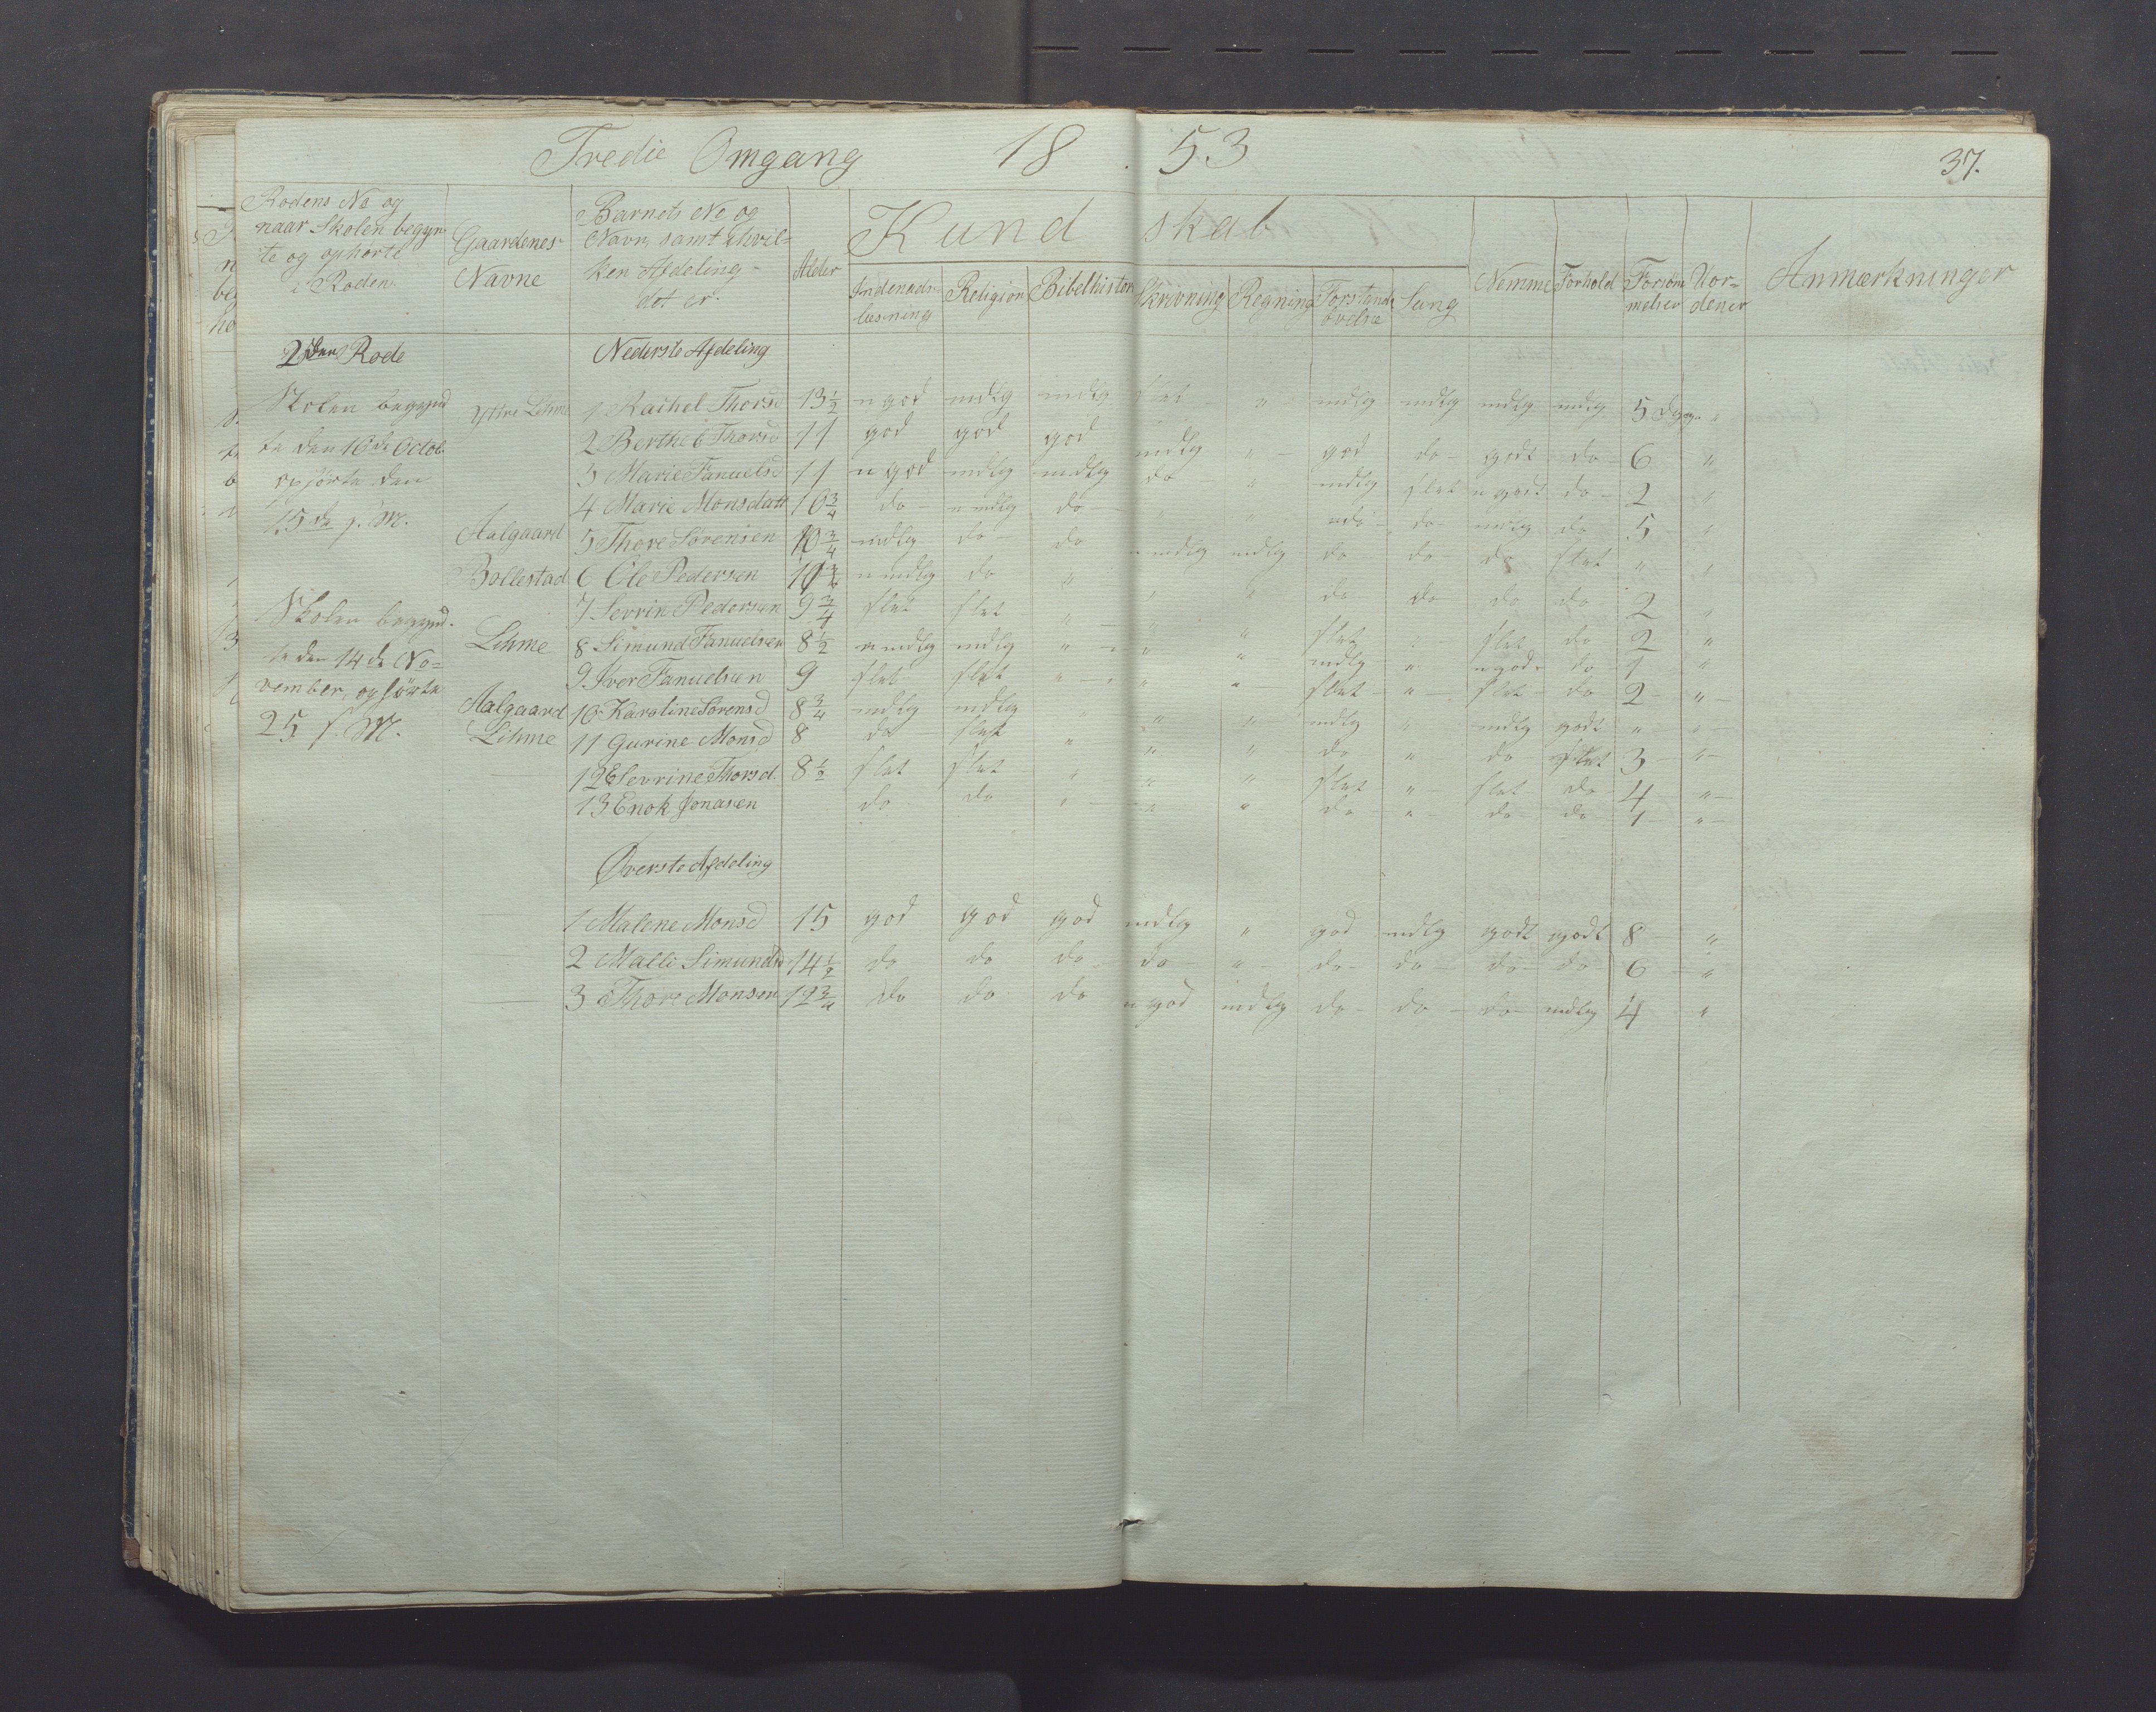 Tredie Omgang 18 53 37.
Rodens No og naar Skolen begyn- te og ophørte i Roden.
Gaardenes Navne
Barnets No og Navn, samt i hvil- ken Afdeling det er.
Alder
Kund skab
Indenads- læsning Religion Bibelhistor Skrivning Regning Forstands øvelse Sang
Nemme Forhold Forsøm melser Uor- dener Anmærkninger
2den Rode Nederste Afdeling
Skolen begynd
te den 10de Octob.
ophørte den
15de s. M.
Skolen begynd-
te den 14de No-
vember, ophørte
25 s. M.
Ytre Lihme 1 Rachel Thorsd 13½ n god mdlg mdlg slet " mdlg mdlg mdlg mdlg 5 Dage "
2 Berthe Thorsd 11 god god god mdlg " god do godt do 6 "
3 Marie Fanuelsd 11 n god mdlg mdlg do " mdlg slet n godt do 2 "
4 Marie Monsdatt 10¾ do n mdlg do " " do mdlg do 5 "
Aalgaard 5 Thore Sørensen 10¾ mdlg do do n mdlg mdlg do do do slet " "
Bollestad 6 Ole Pedersen n mdlg do " " " do do do do 2 "
7 Sevrin Pedersen 9¾ slet slet " " " slet slet do 2 "
Lihme 8 Simund Fanuelsen 8½ n mdlg mdlg " " " mdlg " n god do 1 "
9 Iver Fanuelsen 9 slet slet " " " slet " slet do 2 "
Aalgaard 10 Karoline Sørensd 8¾ mdlg mdlg " " mdlg " mdlg godt " "
Lihme 11 Gurine Monsd 8 do slet " " " do " do slet 3 "
12 Elevrine Thorsd. 8½ slet slet " " " slet " slet do 4 "
13 Enok Jonasen do do " " " do " do do 1 "
Øverste Afdeling
1 Malene Monsd 15 god god god mdlg " god mdlg godt godt 8 "
2 Malli Simundsd 14½ do do do do " do do do do 6 "
3 Thore Monsen 12¾ do do do n god mdlg do do do mdlg 4 "